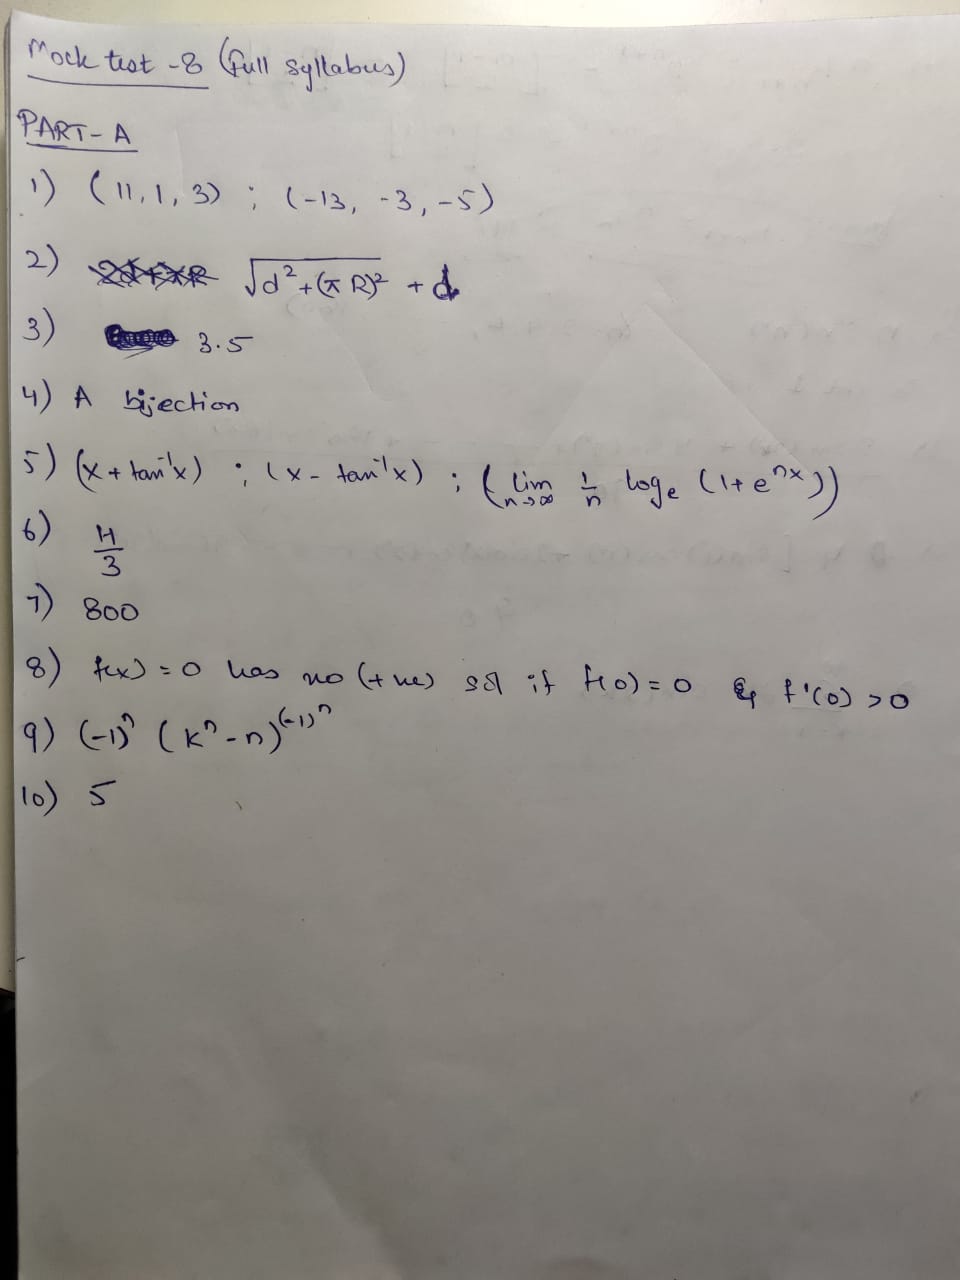 Mock test -8 (full syllabus)
PART-A
1) (11, 1, 3) ; (-13, -3, -5)
2) √(d²+(π R)²) + d
3) 3.5
4) A bijection
5) (x + tan⁻¹x) ; (x - tan⁻¹x) ; (lim n→∞ 1/n logₑ (1+eⁿˣ))
6) H/3
7) 800
8) f(x) = 0 has no (+ve) sol if f(0) = 0 & f'(0) > 0
9) (-1)ⁿ (kⁿ - n)^(-1)ⁿ
10) 5